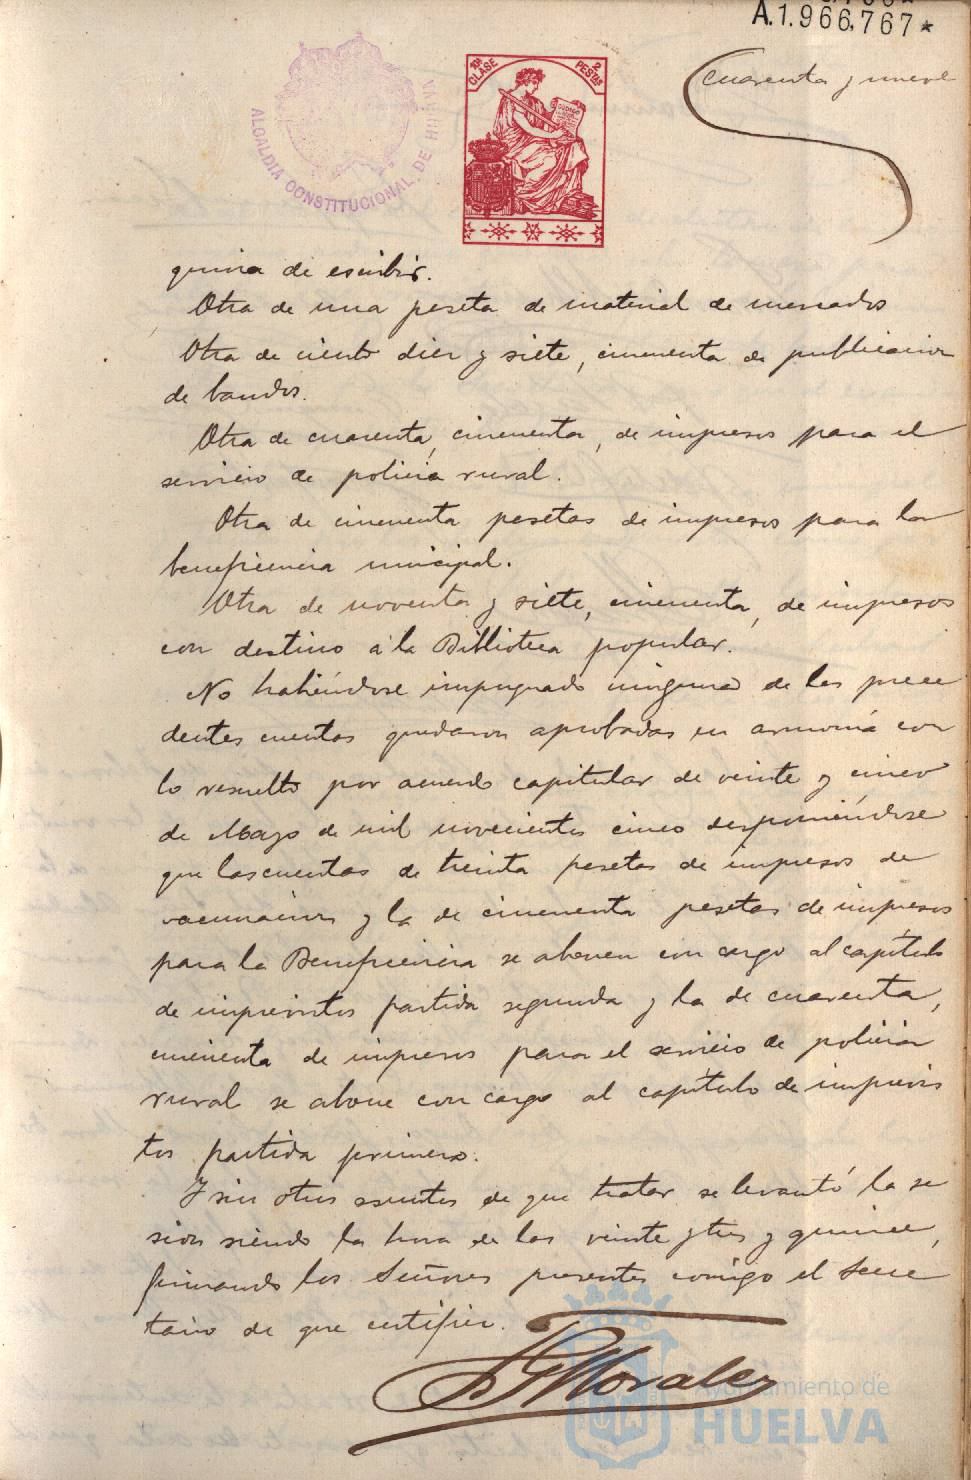 A.1.966,767*
cuarenta y nueve
ALCALDIA CONSTITUCIONAL DE HUELVA
10ª CLASE
2 PESETAS
quina de escribir.
Otra de una peseta de material de mercados
Otra de ciento diez y siete, cincuenta de publicacion
de bandos.
Otra de cuarenta, cincuenta, de impresos para el
servicio de policia rural.
Otra de cincuenta pesetas de impresos para la
beneficencia municipal.
Otra de noventa y siete, cincuenta, de impresos
con destino á la Biblioteca popular.
No habiéndose impugnado ninguna de las prece
dentes cuentas quedaron aprobadas en armonía con
lo resuelto por acuerdo capitular de veinte y cinco
de Mayo de mil novecientos cinco disponiéndose
que las cuentas de treinta pesetas de impresos de
vacunacion y la de cincuenta pesetas de impresos
para la Beneficencia se abonen con cargo al capítulo
de imprevistos partida segunda y la de cuarenta,
cincuenta de impresos para el servicio de policia
rural se abone con cargo al capítulo de imprevis
tos partida primera.
Y sin otros asuntos de que tratar se levantó la se
sion siendo la hora de las veinte y tres y quince,
firmando los Señores presentes conmigo el Secre
tario de que certifico.
Morales
Ayuntamiento de
HUELVA